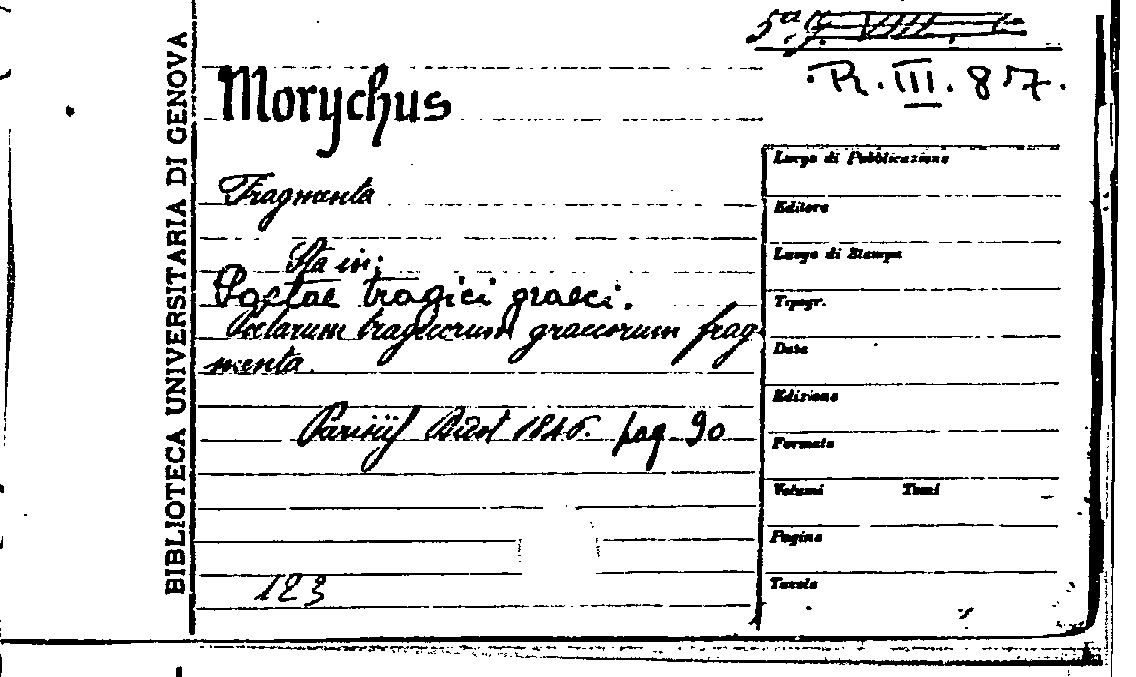 BIBLIOTECA UNIVERSITARIA DI GENOVA
5ª
R. III. 87.
Morychus
Fragmenta
Sta in:
Poetae tragici graeci.
Poetarum tragicorum graecorum frag-
menta.
Parisiis Didot 1846. pag. 90
123
Luogo di Pubblicazione
Editore
Luogo di Stampa
Tipogr.
Data
Edizione
Formato
Volumi Tomi
Pagine
Tavole